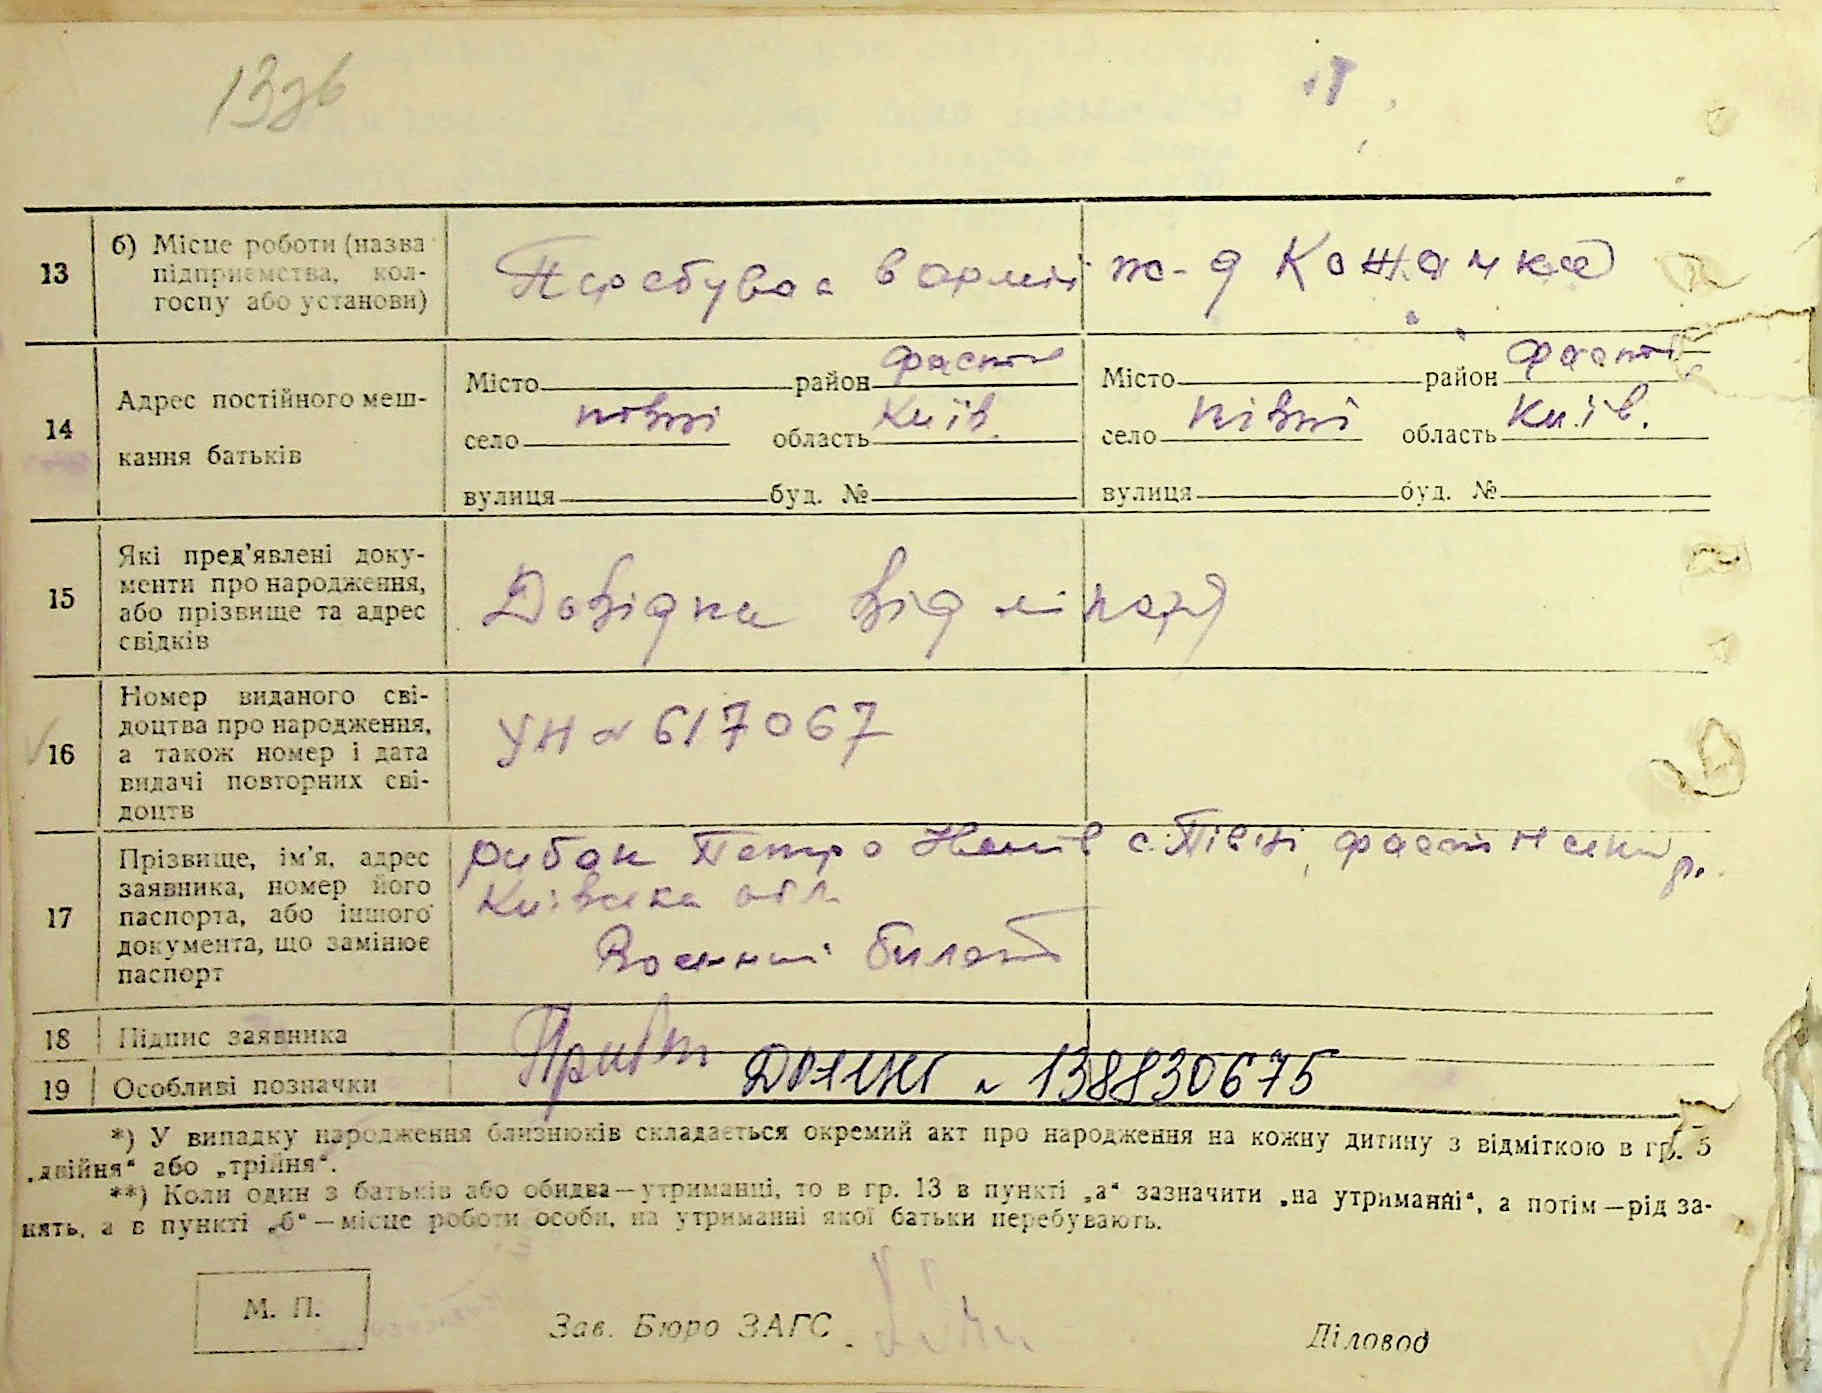 13зв
13
б) Місце роботи (назва підприємства, колгоспу або установи)
Перебував в армії
ж-д Кожанка
14
Адрес постійного мешкання батьків
Місто район Фастів
село Півні область Київ.
вулиця буд. №
Місто район Фастів
село Півні область Київ.
вулиця буд. №
15
Які пред'явлені документи про народження, або прізвище та адрес свідків
Довідка від лікаря
16
Номер виданого свідоцтва про народження, а також номер і дата видачі повторних свідоцтв
УН № 617067
17
Прізвище, ім'я, адрес заявника, номер його паспорта, або іншого документа, що замінює паспорт
Рибак Петро с. Півні, Фастівський р.
Київська обл.
Военний билет
18
Підпис заявника
19
Особливі позначки
№ 138830675
*) У випадку народження близнюків складається окремий акт про народження на кожну дитину з відміткою в гр. 5
„двійня“ або „трійня“.
**) Коли один з батьків або обидва—утриманці, то в гр. 13 в пункті „а“ зазначити „на утриманні“, а потім—рід за-
нять, а в пункті „б“—місце роботи особи, на утриманні якої батьки перебувають.
М. П.
Зав. Бюро ЗАГС
Діловод